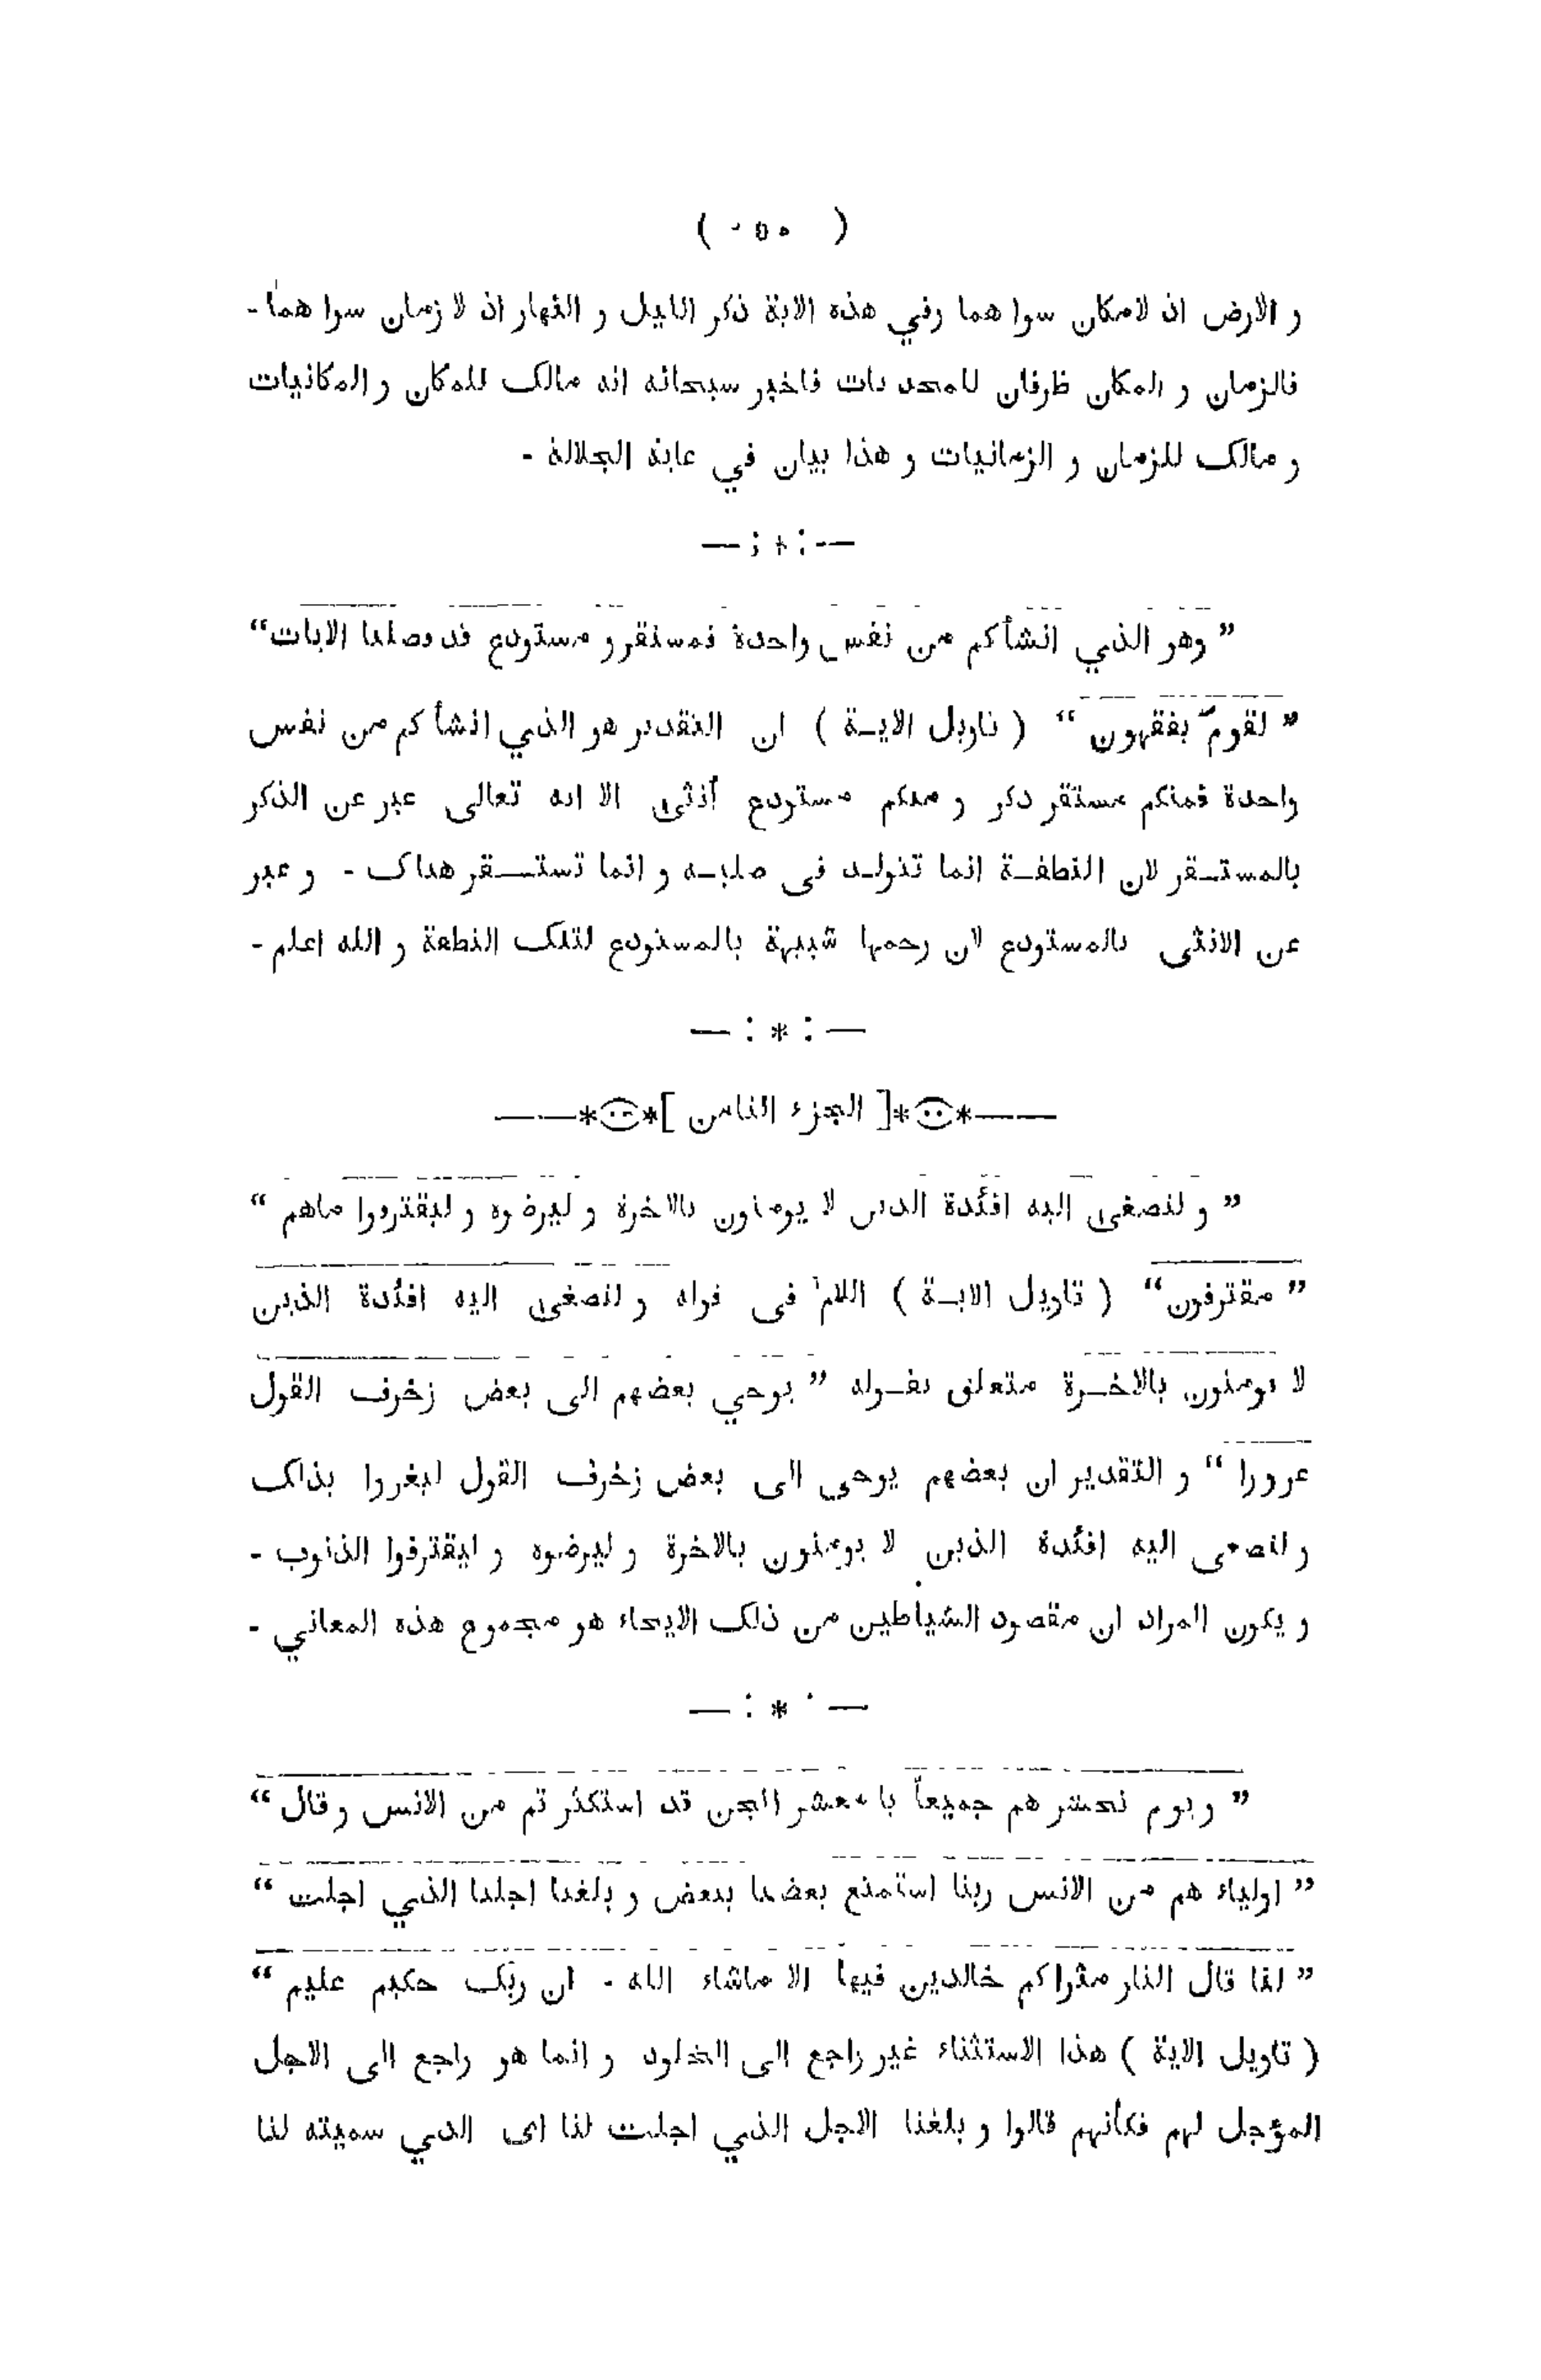 و الارض اذ لامكان سوا هما وفي هذه الاية ذكر الليل و النهار اذ لا زمان سوا هما -
فالزمان و المكان ظرفان للمحد ثات فاخبر سبحانه انه مالك للمكان و المكانيات
و مالك للزمان و الزمانيات و هذا بيان في غاية الجلالة -
— : * : —
” وهو الذي انشأكم من نفس واحدة فمستقر و مستودع قد فصلنا الايات “
” لقوم يفقهون “ ( تاويل الايـة ) ان التقدير هو الذي انشأ كم من نفس
واحدة فمنكم مستقر ذكر و منكم مستودع أنثى الا انه تعالى عبر عن الذكر
بالمستـقر لان النطفـة انما تتولـد فى صلبـه و انما تستـــقر هناك - و عبر
عن الانثى بالمستودع لان رحمها شبيهة بالمستودع لتلك النطفة و الله اعلم -
— : * : —
——*[ الجزء الثامن ]*——
” و لتصغى اليه افئدة الذين لا يومنون بالاخرة و ليرضوه و ليقترفوا ماهم “
” مقترفون “ ( تاويل الايـة ) اللام فى قوله و لتصغى اليه افئدة الذين
لا يومنون بالاخـرة متعلق بقـوله ” يوحي بعضهم الى بعض زخرف القول
غرورا “ و التقدير ان بعضهم يوحى الى بعض زخرف القول ليغروا بذلك
و لتصغى اليه افئدة الذين لا يومنون بالاخرة و ليرضوه و ليقترفوا الذنوب -
و يكون المراد ان مقصود الشياطين من ذلك الايحاء هو مجموع هذه المعاني -
— : * : —
” ويوم نحشر هم جميعاً يا معشر الجن قد استكثر تم من الانس وقال “
” اولياء هم من الانس ربنا استمتع بعضنا ببعض و بلغنا اجلنا الذي اجلت “
” لنا قال النار مثوا كم خالدين فيها الا ماشاء الله - ان ربك حكيم عليم “
( تاويل الاية ) هذا الاستثناء غير راجع الى الخلود و انما هو راجع الى الاجل
المؤجل لهم فكأنهم قالوا و بلغنا الاجل الذي اجلت لنا اى الذي سميته لنا